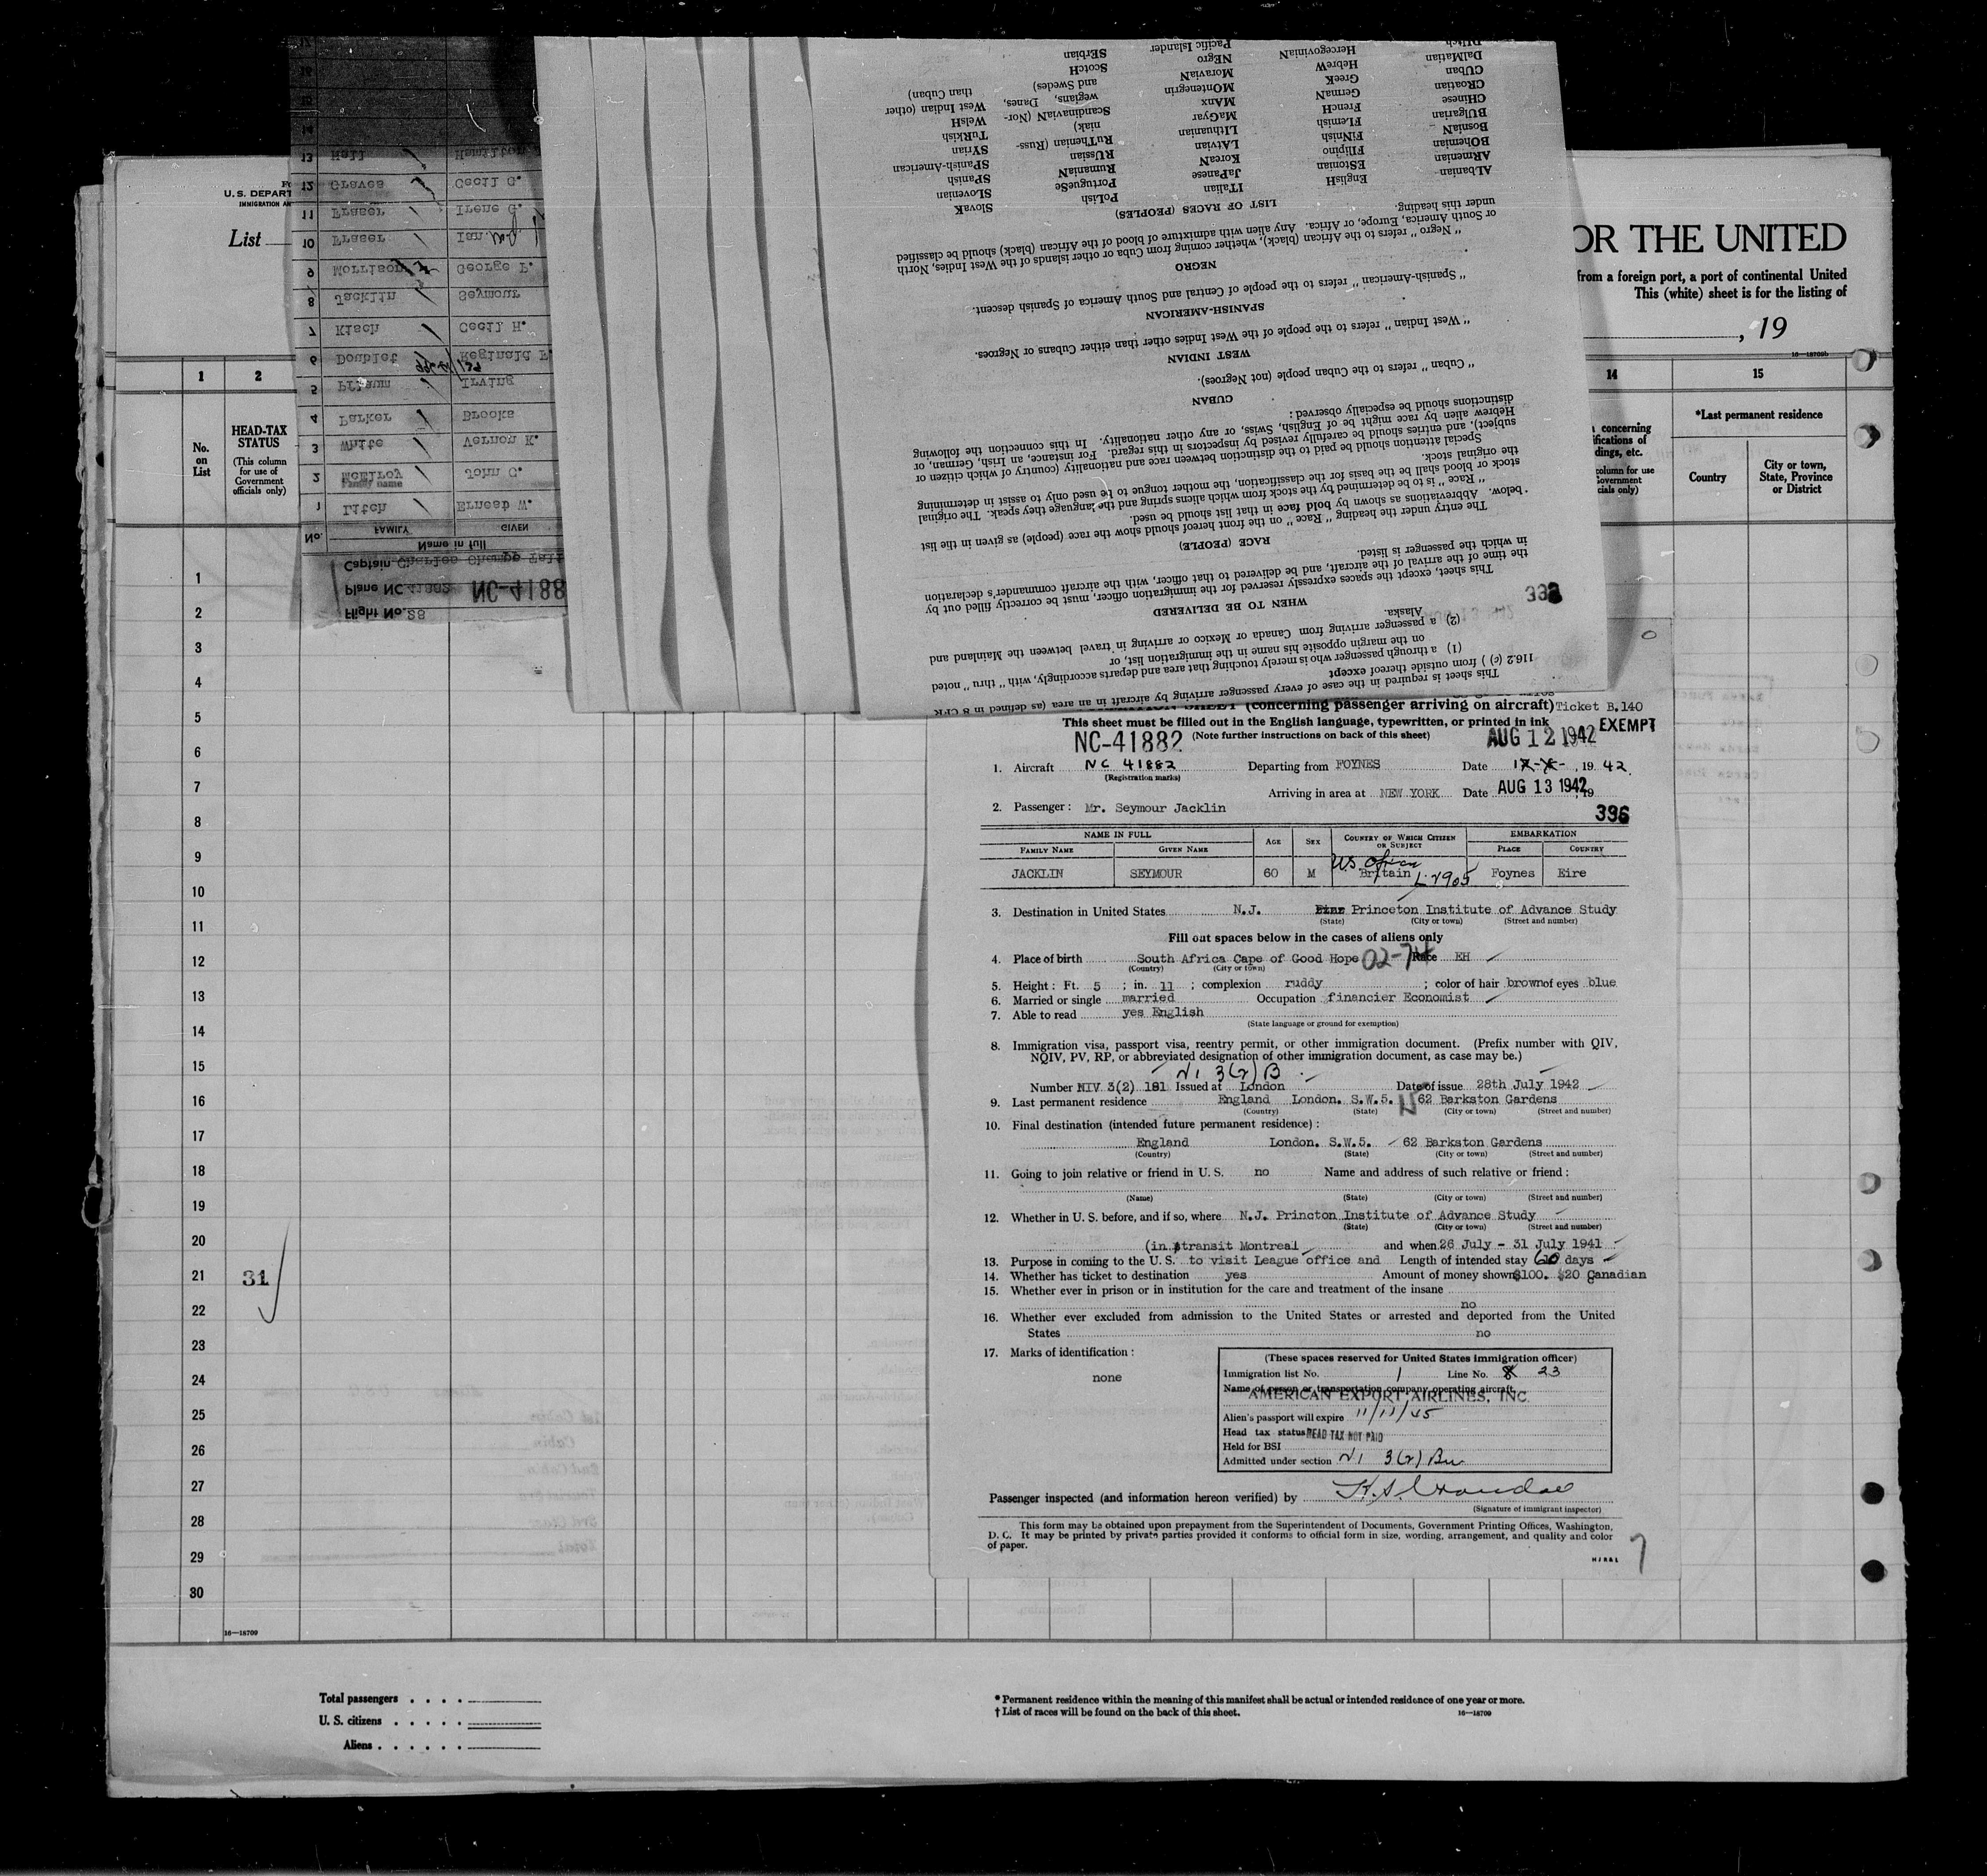 U.S. DEPART
IMMIGRATION AN
List
OR THE UNITED
from a foreign port, a port of continental United
This (white) sheet is for the listing of
, 19
16—18709b
1
2
14
15
No.
on
List
HEAD-TAX
STATUS
(This column
for use of
Government
officials only)
concerning
ifications of
dings, etc.
column for use
Government
cials only)
*Last permanent residence
Country
City or town,
State, Province
or District
1
2
3
4
5
6
7
8
9
10
11
12
13
14
15
16
17
18
19
20
21 31
22
23
24
25
26
27
28
29
30
16—18709
Total passengers . . . .
U. S. citizens . . . . .
Aliens . . . . . .
* Permanent residence within the meaning of this manifest shall be actual or intended residence of one year or more.
† List of races will be found on the back of this sheet.
16—18709
Flight No. 28
Plane NC 41882 NC-4188
Captain Charles
Name in full
No. FAMILY GIVEN
1 Litch Ernest W.
Family name
2 McElroy John C.
3 White Vernon K.
4 Parker Brooks
5 Pflaum Irving
6 Doublet Reginald F.
7 Kisch Cecil H.
8 Jacklin Seymour
9 Morrison George P.
10 Fraser Ian
11 Fraser Irene G.
12 Graves Cecil G.
13 Hall Hamilton
14
This sheet is required in the case of every passenger arriving by aircraft in an area (as defined in 8 CFR
116.2 (c) ) from outside thereof except
(1) a through passenger who is merely touching that area and departs accordingly, with "thru" noted
on the margin opposite his name in the immigration list, or
(2) a passenger arriving from Canada or Mexico or arriving in travel between the Mainland and
Alaska.
WHEN TO BE DELIVERED
This sheet, except the spaces expressly reserved for the immigration officer, must be correctly filled out by
the time of the arrival of the aircraft, and be delivered to that officer, with the aircraft commander's declaration
in which the passenger is listed.
RACE (PEOPLE)
The entry under the heading "Race" on the front hereof should show the race (people) as given in the list
below. Abbreviations as shown by bold face in that list should be used.
"Race" is to be determined by the stock from which aliens spring and the language they speak. The original
stock or blood shall be the basis for the classification, the mother tongue to be used only to assist in determining
the original stock.
Special attention should be paid to the distinction between race and nationality (country of which citizen or
subject), and entries should be carefully revised by inspectors in this regard. For instance, an Irish, German, or
Hebrew alien by race might be of English, Swiss, or any other nationality. In this connection the following
distinctions should be especially observed:
CUBAN
"Cuban" refers to the Cuban people (not Negroes).
WEST INDIAN
"West Indian" refers to the people of the West Indies other than either Cubans or Negroes.
SPANISH-AMERICAN
"Spanish-American" refers to the people of Central and South America of Spanish descent.
NEGRO
"Negro" refers to the African (black), whether coming from Cuba or other islands of the West Indies, North
or South America, Europe, or Africa. Any alien with admixture of blood of the African (black) should be classified
under this heading.
LIST OF RACES (PEOPLES)
ALbanian EnglisH ITalian PoLish SlovaK
ARmenian EStonian JaPanese PortugueSe SLovenian
BOhemian FIlipino KoreaN RumaniaN SPanish
BosniaN FiNnish LATvian RUssian SPanish-American
BUlgarian FLemish LIthuanian RuThenian (Russniak) SYrian
CHinese FrencH MaGyar TuRkish
CRoatian GermaN MAnx ScandinaviaN (Norwegians, Danes, and Swedes) WelsH
CUban GreeK MOntenegrin West Indian (other than Cuban)
DalMatian HebreW MoraviaN ScotcH
DUtch HercegoviniaN NEgro SErbian
Pacific Islander
(concerning passenger arriving on aircraft) Ticket B.140
This sheet must be filled out in the English language, typewritten, or printed in ink EXEMPT
NC-41882 (Note further instructions on back of this sheet) AUG 12 1942
1. Aircraft NC 41882 Departing from FOYNES Date , 19 42.
(Registration marks)
Arriving in area at NEW YORK Date AUG 13 1942, 19
2. Passenger: Mr. Seymour Jacklin
396
NAME IN FULL AGE SEX COUNTRY OF WHICH CITIZEN OR SUBJECT EMBARKATION
FAMILY NAME GIVEN NAME PLACE COUNTRY
JACKLIN SEYMOUR 60 M Britain Foynes Eire
3. Destination in United States N.J. Princeton Institute of Advance Study
(State) (City or town) (Street and number)
Fill out spaces below in the cases of aliens only
4. Place of birth South Africa Cape of Good Hope Race EH
(Country) (City or town)
5. Height: Ft. 5 ; in. 11 ; complexion ruddy ; color of hair brown of eyes blue
6. Married or single married Occupation financier Economist
7. Able to read yes English
(State language or ground for exemption)
8. Immigration visa, passport visa, reentry permit, or other immigration document. (Prefix number with QIV,
NQIV, PV, RP, or abbreviated designation of other immigration document, as case may be.)
Number NIV 3(2) 181 Issued at London Date of issue 28th July 1942
9. Last permanent residence England London. S.W.5. 62 Barkston Gardens
(Country) (State) (City or town) (Street and number)
10. Final destination (intended future permanent residence):
England London. S.W.5. 62 Barkston Gardens
(Country) (State) (City or town) (Street and number)
11. Going to join relative or friend in U. S. no Name and address of such relative or friend:
(Name) (State) (City or town) (Street and number)
12. Whether in U. S. before, and if so, where N.J. Princton Institute of Advance Study
(State) (City or town) (Street and number)
(in transit Montreal and when 26 July - 31 July 1941
13. Purpose in coming to the U. S. to visit League office and Length of intended stay 60 days
14. Whether has ticket to destination yes Amount of money shown $100. $20 Canadian
15. Whether ever in prison or in institution for the care and treatment of the insane
no
16. Whether ever excluded from admission to the United States or arrested and deported from the United
States no
17. Marks of identification:
none
(These spaces reserved for United States immigration officer)
Immigration list No. 1 Line No. 8 23
Name of person or transportation company operating aircraft
AMERICAN EXPORT AIRLINES, INC.
Alien's passport will expire 11/11/45
Head tax status HEAD TAX NOT PAID
Held for BSI
Admitted under section
Passenger inspected (and information hereon verified) by
(Signature of immigrant inspector)
This form may be obtained upon prepayment from the Superintendent of Documents, Government Printing Offices, Washington,
D. C. It may be printed by private parties provided it conforms to official form in size, wording, arrangement, and quality and color
of paper.
7